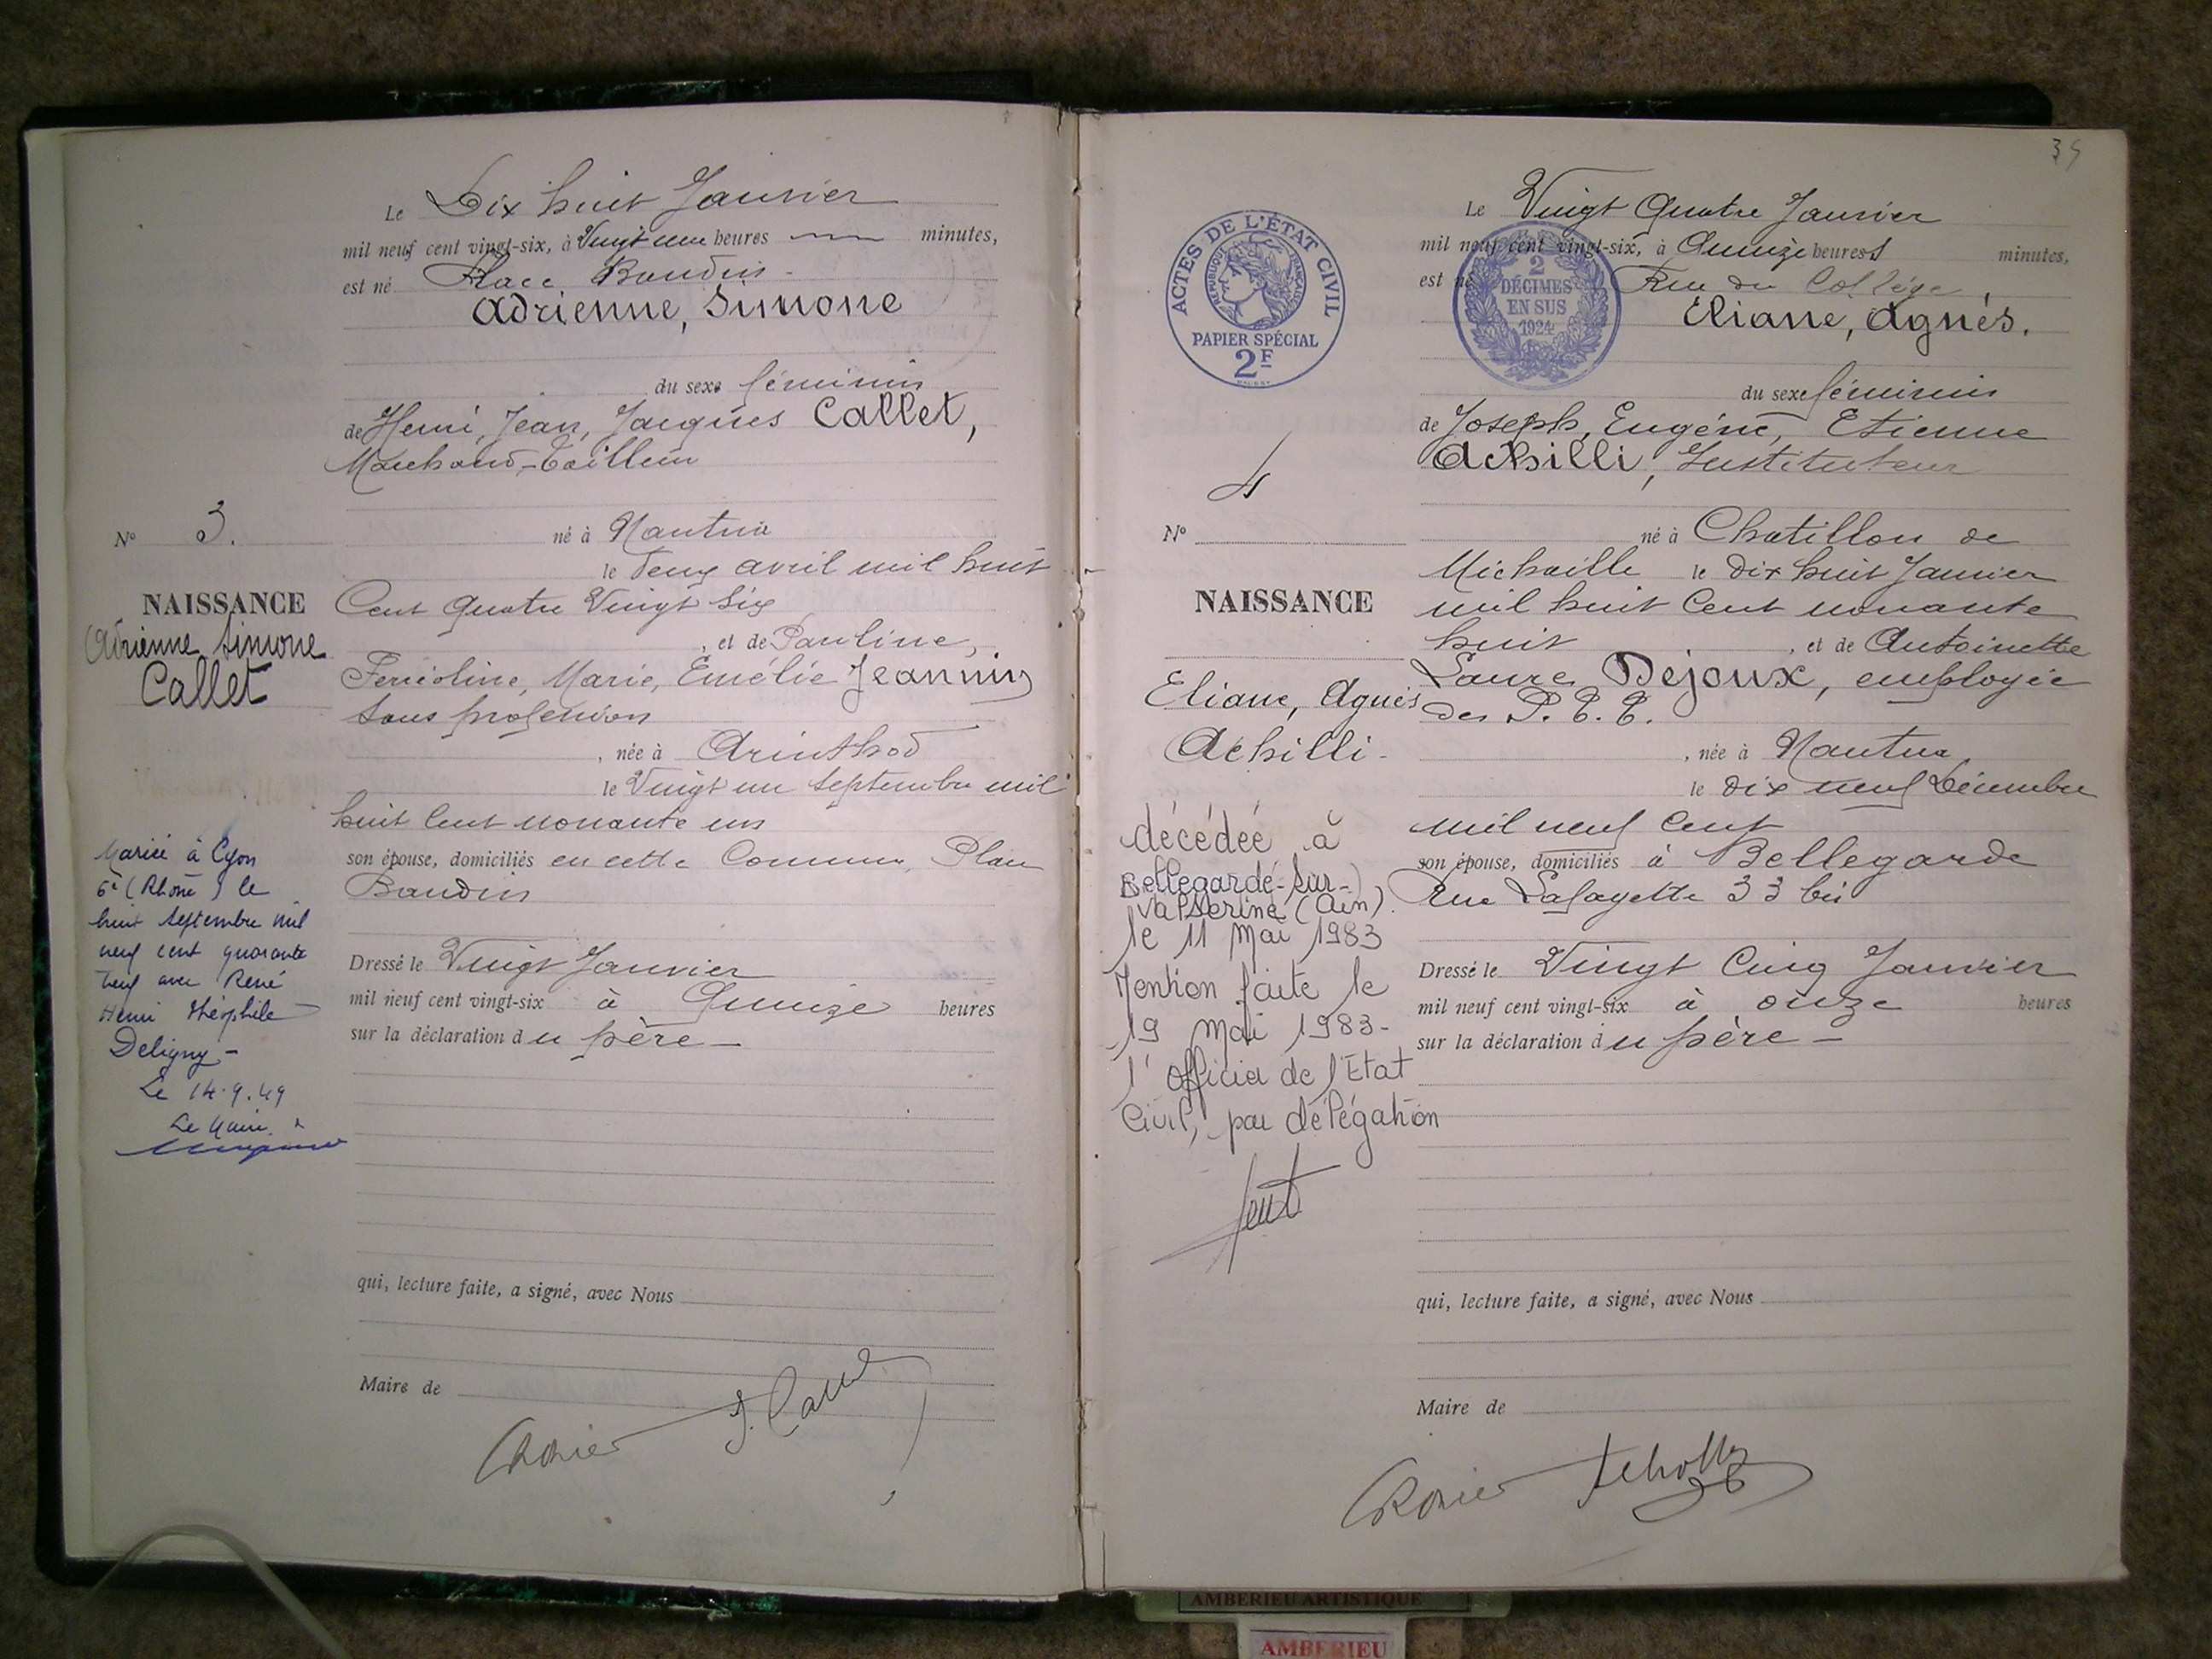 Le Dix huit Janvier
mil neuf cent vingt-six, à Vingt une heures minutes,
est né Place Baudin -
Adrienne, Simone
du sexe féminin
de Henri, Jean, Jacques Callet,
Marchand-Tailleur
né à Nantua
le deux avril mil huit
Cent quatre Vingt Six
, et de Pauline,
Ferréoline, Marie, Emélie Jeannin
Sans profession
, née à Arinthod
le Vingt un Septembre mil
huit Cent nonante un
son épouse, domiciliés en cette Commune, Place
Baudin
Dressé le Vingt Janvier
mil neuf cent vingt-six à Quinze heures
sur la déclaration du père -
qui, lecture faite, a signé, avec Nous
Maire de
N° 3.
NAISSANCE
Adrienne Simone
Callet
Mariée à Lyon
6e (Rhône) le
huit Septembre mil
neuf cent quarante
neuf avec René
Henri Théophile
Deligny -
Le 14.9.49
Le Maire
34
ACTES DE L'ÉTAT CIVIL
RÉPUBLIQUE FRANÇAISE
PAPIER SPÉCIAL
2F
2
DÉCIMES
EN SUS
1924
Le Vingt Quatre Janvier
mil neuf cent vingt-six, à Quinze heures minutes,
est né Rue du Collège,
Eliane, Agnès.
du sexe féminin
de Joseph, Eugène, Etienne
Achilli, Instituteur
né à Chatillon de
Michaille le dix huit Janvier
mil huit Cent nonante
huit , et de Antoinette
Laure Dejoux, employée
des P. T. T.
, née à Nantua
le dix neuf Décembre
mil neuf Cent
son épouse, domiciliés à Bellegarde
Rue Lafayette 33 bis
Dressé le Vingt Cinq Janvier
mil neuf cent vingt-six à onze heures
sur la déclaration du père -
qui, lecture faite, a signé, avec Nous
Maire de
4
N°
NAISSANCE
Eliane, Agnès
Achilli -
décédée à
Bellegarde-sur-
Valserine (Ain).
le 11 Mai 1983
Mention faite le
19 Mai 1983 -
l'officier de l'Etat
Civil, par délégation
AMBERIEU ARTISTIQUE
AMBERIEU